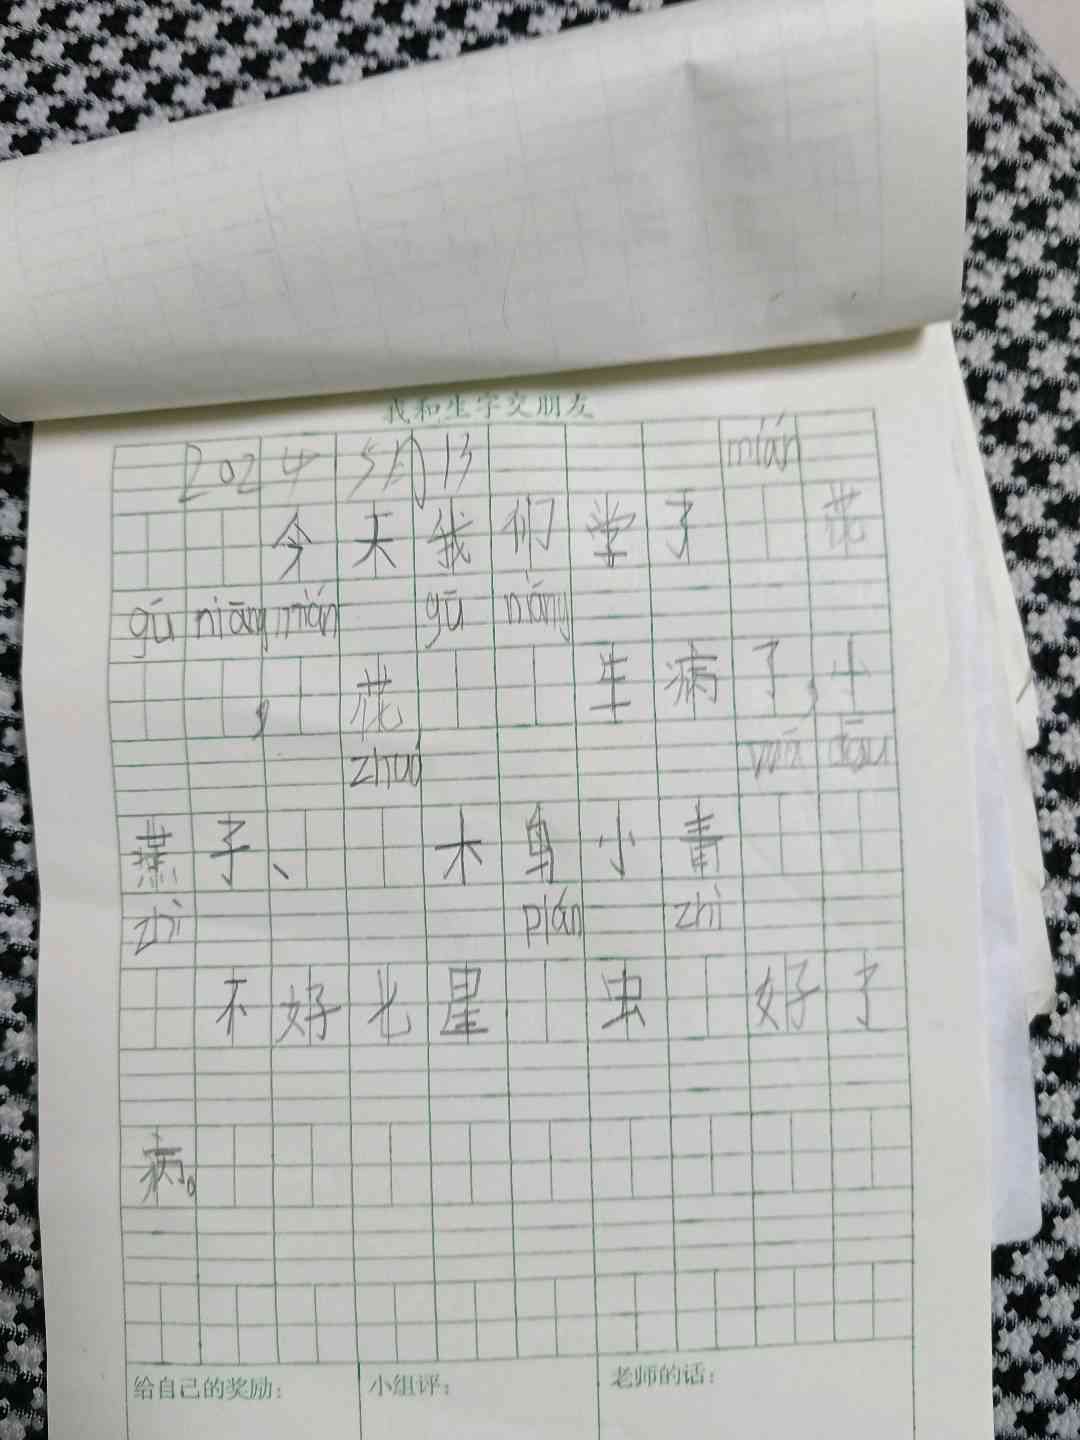 我和生字交朋友
2024 5月13 mián
今天我们学了 花
gū niāng mián gū niáng
, 花 生病了,小
zhuó wā dōu
燕子、 木鸟小青
zhì pián zhì
不好七星 虫 好了
病。
给自己的奖励: 小组评: 老师的话: